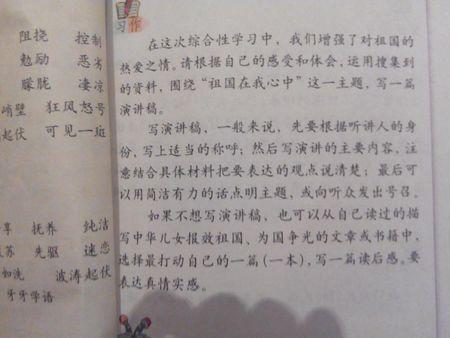 阻挠 控制
勉励 恶劣
朦胧 凄凉
峭壁 狂风怒号
起伏 可见一斑
抚养 纯洁
苏 先驱 迷恋
如洗 波涛起伏
牙牙学语
习作
在这次综合性学习中,我们增强了对祖国的
热爱之情。请根据自己的感受和体会,运用搜集到
的资料,围绕“祖国在我心中”这一主题,写一篇
演讲稿。
写演讲稿,一般来说,先要根据听讲人的身
份,写上适当的称呼;然后写演讲的主要内容,注
意结合具体材料把要表达的观点说清楚;最后可
以用简洁有力的话点明主题,或向听众发出号召。
如果不想写演讲稿,也可以从自己读过的描
写中华儿女报效祖国、为国争光的文章或书籍中,
选择最打动自己的一篇(一本),写一篇读后感。要
表达真情实感。